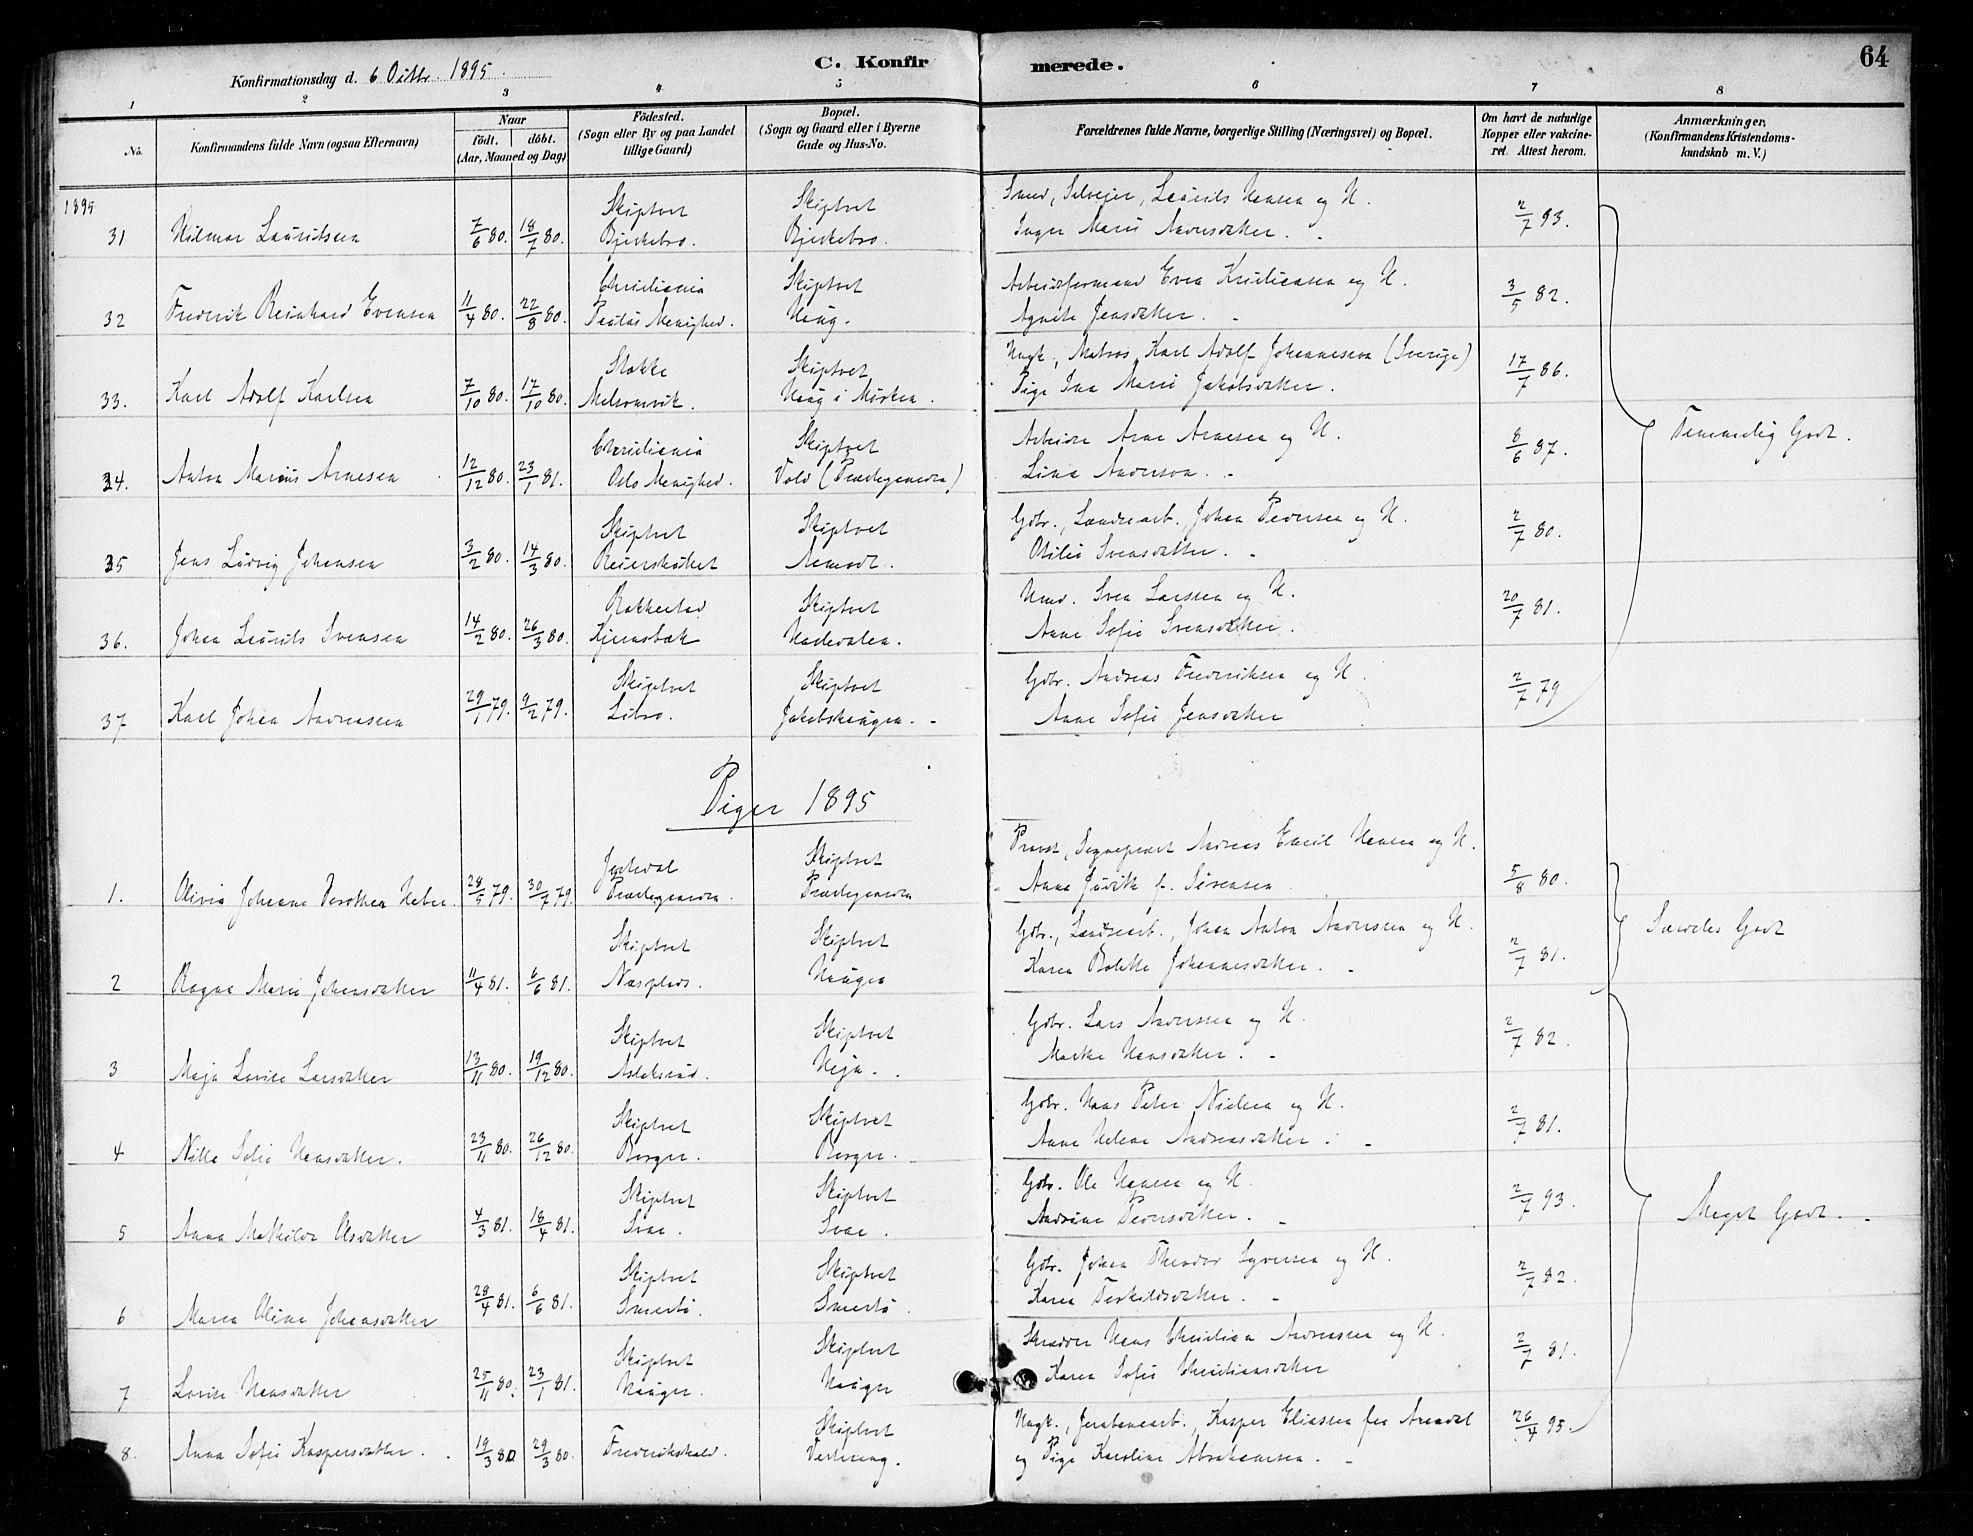 64
Konfirmationsdag d. 6 Octbr. 1895.
C. Konfir merede.
1 2 3 4 5 6 7 8
No.
Konfirmandens fulde Navn (ogsaa Efternavn)
Naar
födt. döbt.
(Aar, Maaned og Dag)
Födested.
(Sogn eller By og paa Landet
tillige Gaard)
Bopæl.
(Sogn og Gaard eller i Byerne
Gade og Hus-No.
Forældrenes fulde Navne, borgerlige Stilling (Næringsvei) og Bopæl.
Om havt de naturlige
Kopper eller vakcine-
ret. Attest herom.
Anmærkninger.
(Konfirmandens Kristendoms-
kundskab m. V.)
1895
Skiptvet Skiptvet Smed, Selvejer, Laurits Hansen og H.
31 Hilmar Lauritsen 7/6 80. 18/7 80. Bjerkebro. Bjerkebro. Inger Marie Andersdatter. 2/7 93.
Christiania Skiptvet Arbeidsformand Even Kristiansen og H.
32 Fredrik Reinhard Evensen 11/4 80. 22/8 80. Paulus Menighed. Haug. Agnete Jensdatter. 3/5 82.
Stokke Skiptvet Ungk., Matros, Karl Adolf Johannesen (Sverige)
33. Karl Adolf Karlsen 7/10 80. 17/10 80. Melsomvik. Haug i Mörken. Pige Ina Marie Jakobsdatter. 17/7 86.
Christiania Skiptvet Arbeider Arne Arnesen og H.
34. Anton Marius Arnesen 12/12 80. 23/1 81. Oslo Menighed. Vold (Prædegaarden) Lina Anderson. 8/6 87.
Temmelig Godt.
Skiptvet Skiptvet Gdbr., Landsarb. Johan Pedersen og H.
35 Jens Ludvig Johansen 3/2 80. 14/3 80. Reierskotet Aamodt. Otilie Svensdatter. 2/7 80.
Rakkestad Skiptvet Husmd. Sven Larssen og H.
36. Johan Laurits Svensen 14/2 80. 26/3 80. Kjernsbæk Haavedalen. Anne Sofie Svensdatter. 20/7 81.
Skiptvet Skiptvet Gdbr. Andreas Fredriksen og H.
37 Karl Johan Andreassen 29/1 79. 9/2 79. Libro. Jakobshaugen. Anne Sofie Jensdatter 2/7 79
Piger 1895
Jostedal Skiptvet Provst, Sognepræst Andreas Emil Hansen og H.
1. Olivia Johanne Dorothea Heber. 28/5 79. 30/7 79. Prædegaarden. Prædegaarden Anna Judith f. Sörensen. 5/8 80.
Skiptvet Skiptvet Gdbr., Landsarb., Johan Anton Andersen og H.
2 Ragna Marie Johansdatter 11/4 81. 6/6 81. Næsplads. Haugen Karen Bolette Johannesdatter. 2/7 81.
Særdeles Godt
Skiptvet Skiptvet Gdbr. Lars Andersen og H.
3 Maja Lovise Larsdatter 13/11 80. 19/12 80. Aslaksrud. Heja. Marthe Hansdatter. 2/7 82.
Skiptvet Skiptvet Gdbr. Hans Peter Nielsen og H.
4 Nille Sofie Hansdatter. 23/11 80. 26/12 80. Borger. Borger. Anne Helene Andreasdatter. 2/7 81.
Skiptvet Skiptvet Gdbr. Ole Hansen og H.
5 Anna Mathilde Olsdatter 4/3 81. 18/4 81. Svae. Svae. Andrine Pedersdatter. 2/7 93.
Meget Godt.
Skiptvet Skiptvet Gdbr. Johan Theodor Syversen og H.
6 Maren Oline Johansdatter 28/4 81. 6/6 81. Smertu. Smertu. Karen Torkildsdatter. 2/7 82.
Skiptvet Skiptvet Skrædder Hans Christian Andreassen og H.
7 Lovise Hansdatter 25/11 80. 23/1 81. Hauger. Hauger Karen Sofie Christiansdatter 2/7 81.
Skiptvet Ungk., Jernbanearb., Kasper Eliassen fra Arendal
8. Anna Sofie Kaspersdatter. 19/3 80 29/3 80. Fredrikshald. Vestereng. og Pige Karoline Abrahamsen. 26/4 95.